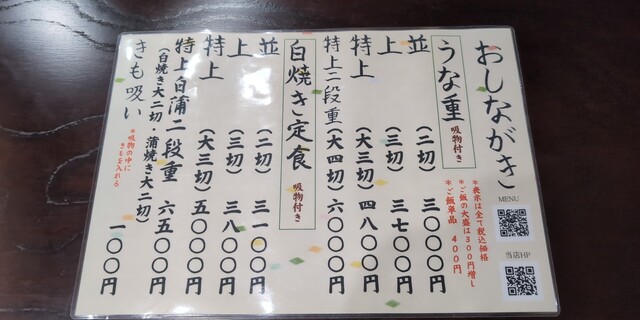 おしながき
MENU
当店HP
*表示は全て税込価格
*ご飯の大盛は300円増し
*ご飯単品 400円
うな重 吸物付き
並 (二切) 三〇〇〇円
上 (三切) 三七〇〇円
特上 (大三切) 四八〇〇円
特上二段重 (大四切) 六〇〇〇円
白焼き定食 吸物付き
並 (二切) 三一〇〇円
上 (三切) 三八〇〇円
特上 (大三切) 五〇〇〇円
特上白蒲二段重 六五〇〇円
(白焼き大二切・蒲焼き大二切)
きも吸い 一〇〇円
*吸物の中に
きもを入れる